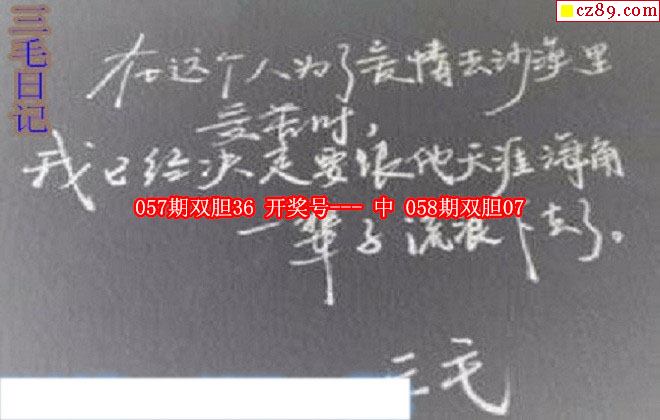 cz89.com
三毛日记
在这个人为了爱情去沙漠里
受苦时,
我已经决定要跟他天涯海角
057期双胆36 开奖号--- 中 058期双胆07
一辈子流浪下去了。
三毛